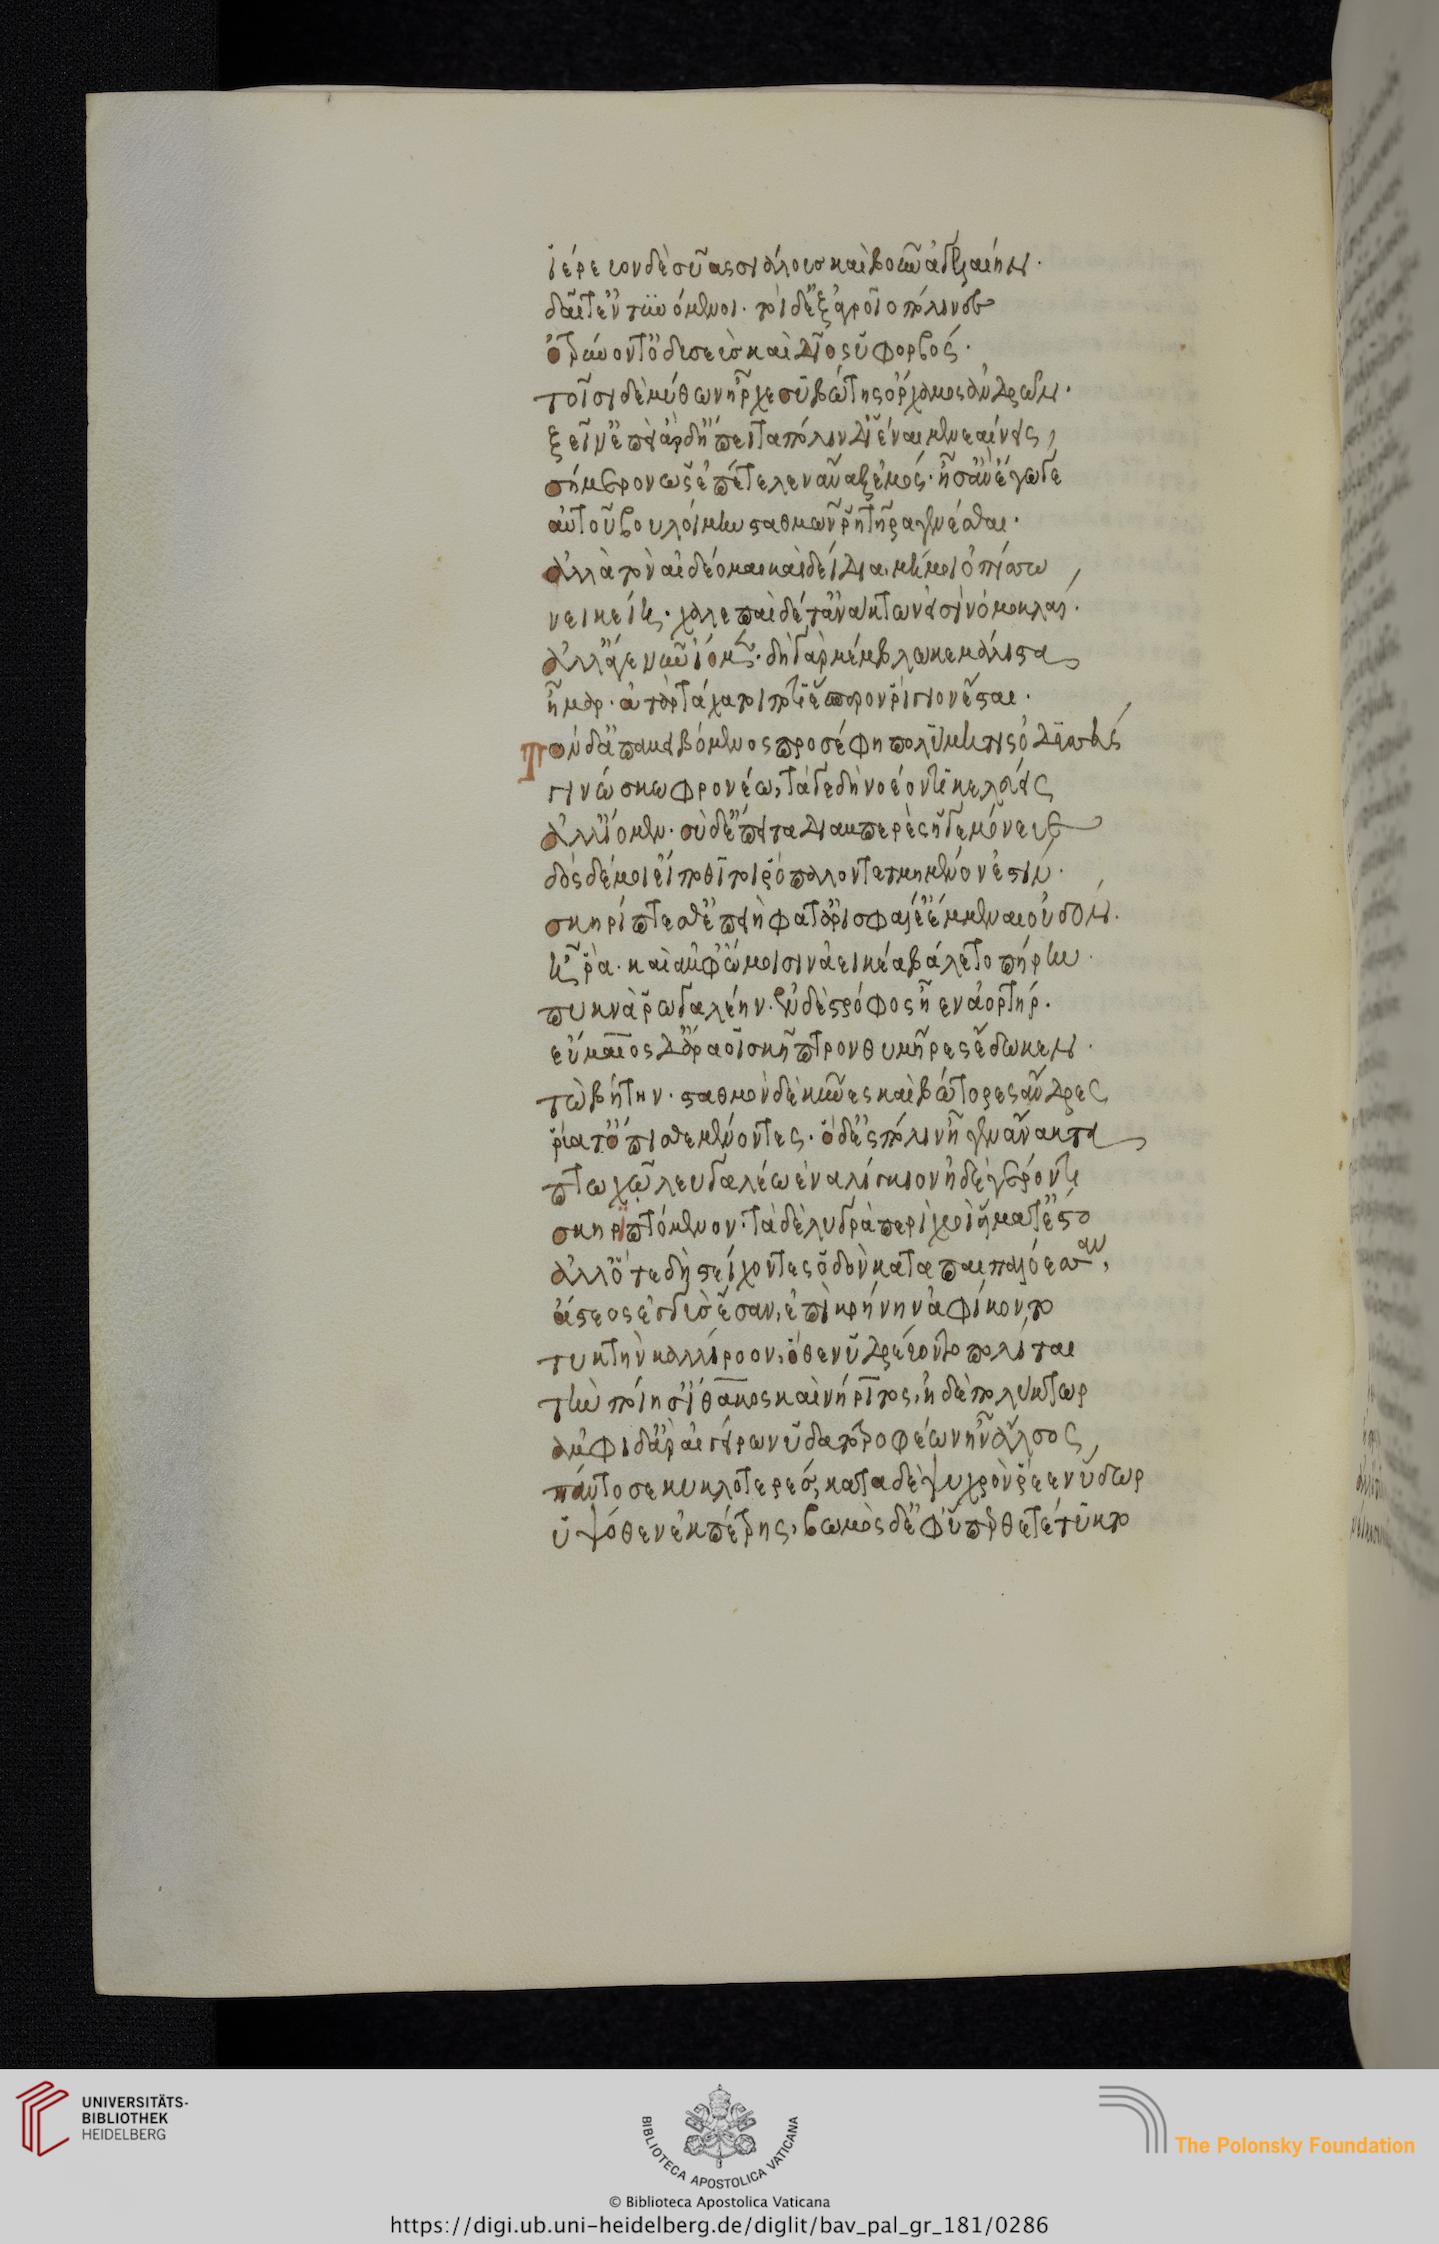 ἱέρευον δὲ σῦας σιάλους καὶ βοῦν ἀγελαίην.
δαῖτ' ἐντυνόμενοι. τοὶ δ' ἐξ ἀγροῖο πόλιν δὲ
ὀτρύνοντ' ὀδυσεὺς καὶ δῖος ὑφορβός.
τοῖσι δὲ μύθων ἦρχε συβώτης ὄρχαμος ἀνδρῶν.
ξεῖν' ἐπεὶ ἂρ δὴ ἔπειτα πόλινδ' ἰέναι μενεαίνεις,
σήμερον ὡς ἐπέτελλεν ἄναξ ἐμός. ἦ σ' ἂν ἔγωγε
αὐτοῦ βουλοίμην σταθμῶν ῥητῆρα γενέσθαι.
ἀλλὰ τὸν αἰδέομαι καὶ δείδια, μή μοι ὀπίσσω
νεικείῃ. χαλεπαὶ δέ τ' ἀνάκτων εἰσὶν ὁμοκλαί.
ἀλλ' ἄγε νῦν ἴομεν. δὴ γὰρ μέμβλωκε μάλιστα
ἦμαρ. ἀτὰρ τάχα τοι ποτὶ ἕσπερον ῥίγιον ἔσται.
Τὸν δ' ἀπαμειβόμενος προσέφη πολύμητις ὀδυσσεύς
γινώσκω φρονέω, τά γε δὴ νοέοντι κελεύεις
ἀλλ' ἴομεν. σὺ δ' ἔπειτα διαμπερὲς ἡγεμόνευε
δὸς δέ μοι εἴ ποθί τοι ῥόπαλον τετμημένον ἐστίν.
σκηρίπτεσθ' ἐπειὴ φατ' ἀρισφαλέ' ἔμμεναι οὐδόν.
ἦ ῥα. καὶ ἀμφ' ὤμοισιν ἀεικέα βάλετο πήρην.
πυκνὰ ῥωγαλέην. ἐν δὲ στρόφος ἦεν ἀορτήρ.
εὔμαιος δ' ἄρα οἱ σκῆπτρον θυμῆρες ἔδωκεν.
τὼ βήτην. σταθμὸν δὲ κύνες καὶ βώτορες ἄνδρες
ῥύατ' ὄπισθε μένοντες. ὁ δ' ἐς πόλιν ἦγεν ἄνακτα
πτωχῷ λευγαλέω ἐναλίγκιον ἠδὲ γέροντι
σκηριπτόμενον. τὰ δὲ λυγρὰ περὶ χροῒ εἵματ' ἕστο
ἀλλ' ὅτε δὴ στείχοντες ὁδὸν κάτα παιπαλόεσσαν,
ἄστεος ἐγγὺς ἔσαν, ἐπὶ κρήνην ἀφίκοντο
τυκτὴν καλλίροον, ὅθεν ὑδρεύοντο πολῖται
τὴν ποίησ' ἴθακος καὶ νήριτος, ἠδὲ πολύκτωρ
ἀμφὶ δ' ἄρ' αἰγείρων ὑδατοτροφέων ἦν ἄλσος
πάντοσε κυκλοτερές, κατὰ δὲ ψυχρὸν ῥέεν ὕδωρ
ὑψόθεν ἐκ πέτρης, βωμὸς δ' ἐφύπερθε τέτυκτο
UNIVERSITÄTS-
BIBLIOTHEK
HEIDELBERG
BIBLIOTECA APOSTOLICA VATICANA
The Polonsky Foundation
© Biblioteca Apostolica Vaticana
https://digi.ub.uni-heidelberg.de/diglit/bav_pal_gr_181/0286